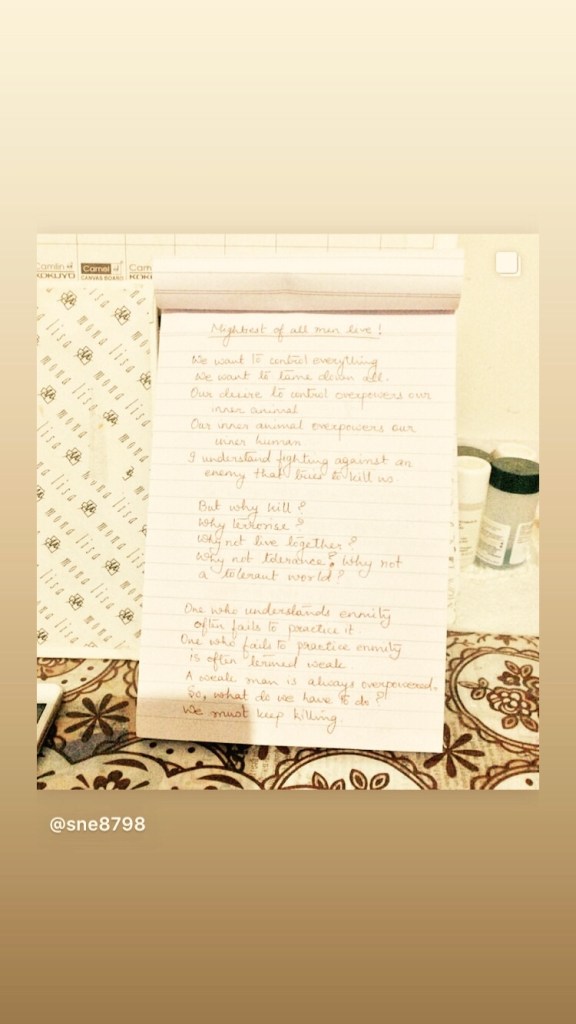 Camlin
KOKUYO
Camel
CANVAS BOARD
Cam
KOKU
mona
lisa
Mightiest of all men live!
We want to control everything
We want to tame down all.
Our desire to control overpowers our
inner animal
Our inner animal overpowers our
inner human
I understand fighting against an
enemy that tries to kill us.
But why kill?
Why terrorise?
Why not live together?
Why not tolerance? Why not
a tolerant world?
One who understands enmity
often fails to practice it
One who fails to practice enmity
is often termed weak.
A weak man is always overpowered.
So, what do we have to do?
We must keep killing.
@sne8798